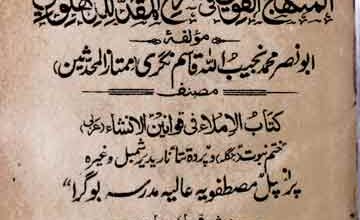 المنهج القوي فی شرح المقدمة للدهلوي
مؤلفۂ
ابو نصر محمد نجیب اللہ قاسم نگری (ممتاز المحدثین)
مصنف
کتاب الاملاء فی قوانین الانشاء (عربی)
ختم نبوت (بنگلہ) و پردہ تتا نار دیر شمبل وغیرہ
پرنسپل مصطفویہ عالیہ مدرسہ بوگرا